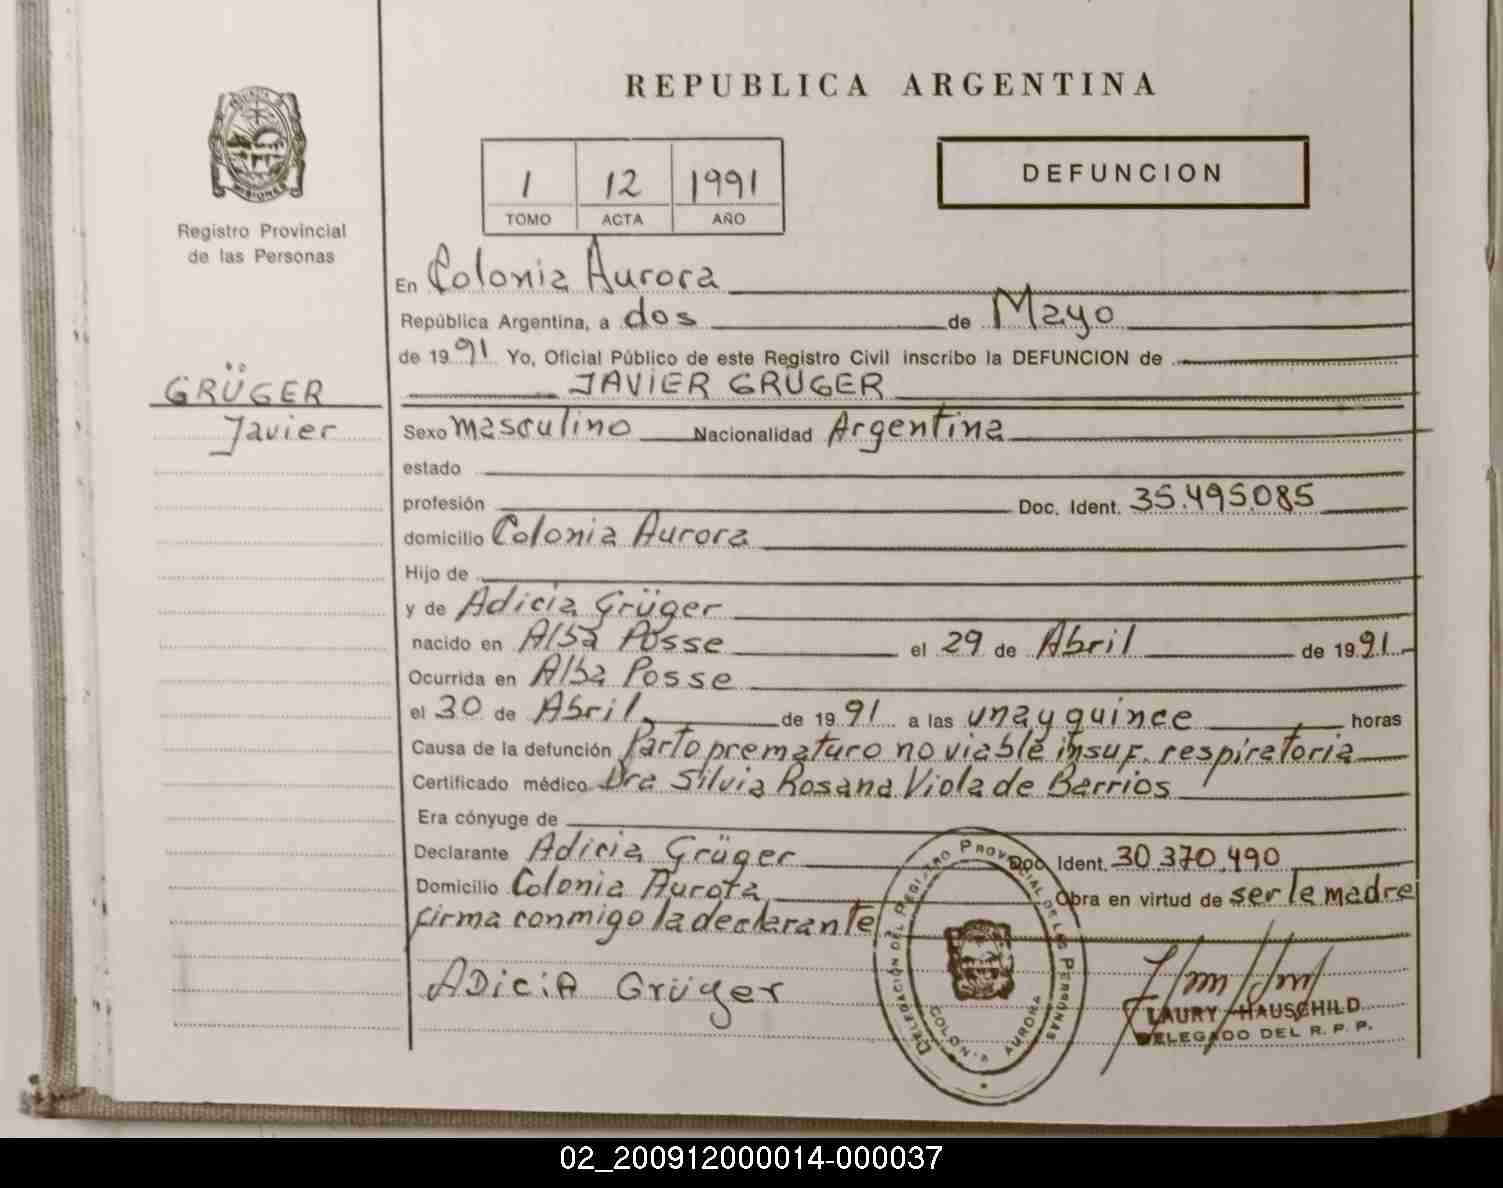 REPUBLICA ARGENTINA
MISIONES
Registro Provincial
de las Personas
1 12 1991
TOMO ACTA AÑO
DEFUNCION
En Colonia Aurora
República Argentina, a dos de Mayo
de 1991 Yo, Oficial Público de este Registro Civil inscribo la DEFUNCION de
GRÜGER
Javier
JAVIER GRÜGER
Sexo masculino Nacionalidad Argentina
estado
profesión Doc. Ident. 35.495.085
domicilio Colonia Aurora
Hijo de
y de Adicia Grüger
nacido en Alba Posse el 29 de Abril de 1991
Ocurrida en Alba Posse
el 30 de Abril de 1991 a las una y quince horas
Causa de la defunción Parto prematuro no viable insuf. respiratoria
Certificado médico Dra Silvia Rosana Viola de Barrios
Era cónyuge de
Declarante Adicia Grüger Doc. Ident. 30.370.490
Domicilio Colonia Aurora Obra en virtud de ser la madre
firma conmigo la declarante
ADiCiA Grüger
DELEGACIÓN DEL REGISTRO PROVINCIAL DE LAS PERSONAS
COLONIA AURORA
LAURY HAUSCHILD
DELEGADO DEL R. P. P.
02_200912000014-000037